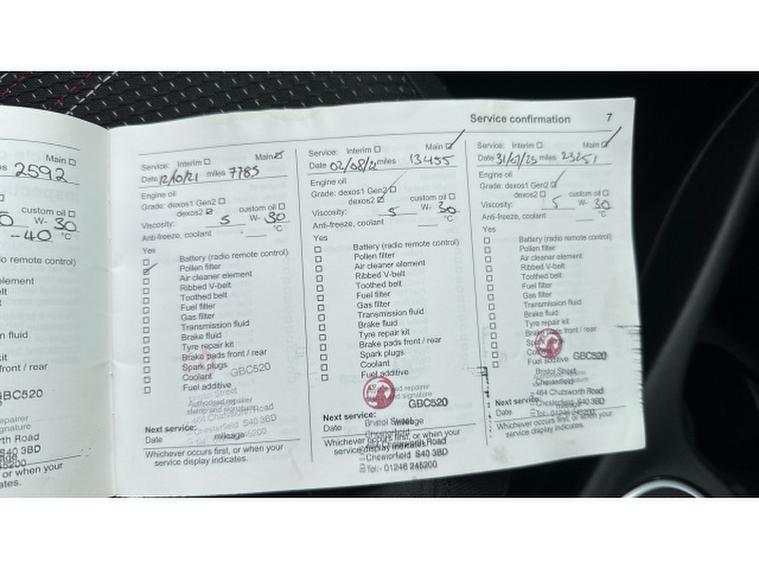 Service confirmation 7
Main
2592
custom oil
W- 30
-40 °C
o remote control)
element
elt
lt
n fluid
kit
front / rear
GBC520
orth Road
3BD
or when your
ates.
Service: Interim Main
Date 12/10/21 miles 7785
Engine oil
Grade: dexos1 Gen2
dexos2 custom oil
Viscosity: 5 W- 30
Anti-freeze, coolant °C
Yes
Battery (radio remote control)
Pollen filter
Air cleaner element
Ribbed V-belt
Toothed belt
Fuel filter
Gas filter
Transmission fluid
Brake fluid
Tyre repair kit
Brake pads front / rear
Spark plugs
Coolant
Fuel additive
GBC520
Street
Authorised repairer
stamp and signature
464 Chatsworth Road
Chesterfield S40 3BD
Next service:
Date mileage
Whichever occurs first, or when your
service display indicates.
Service: Interim Main
Date 02/08/22 miles 13455
Engine oil
Grade: dexos1 Gen2
dexos2 custom oil
Viscosity: 5 W- 30
Anti-freeze, coolant °C
Yes
Battery (radio remote control)
Pollen filter
Air cleaner element
Ribbed V-belt
Toothed belt
Fuel filter
Gas filter
Transmission fluid
Brake fluid
Tyre repair kit
Brake pads front / rear
Spark plugs
Coolant
Fuel additive
repairer
signature
GBC520
Next service:
Date mileage
Bristol Street
Chesterfield
464 Chatsworth Road
Chesterfield S40 3BD
Tel:- 01246 245200
Whichever occurs first, or when your
service display indicates.
Service: Interim Main
Date miles 23251
Engine oil
Grade: dexos1 Gen2
dexos2 custom oil
Viscosity: 5 W- 30
Anti-freeze, coolant °C
Yes
Battery (radio remote control)
Pollen filter
Air cleaner element
Ribbed V-belt
Toothed belt
Fuel filter
Gas filter
Transmission fluid
Brake fluid
Tyre repair kit
Brake pads front / rear
Fuel additive
GBC520
Bristol Street
Chesterfield
464 Chatsworth Road
Chesterfield S40 3BD
Tel:- 01246 245200
Next service:
Date
Whichever occurs first, or when your
service display indicates.